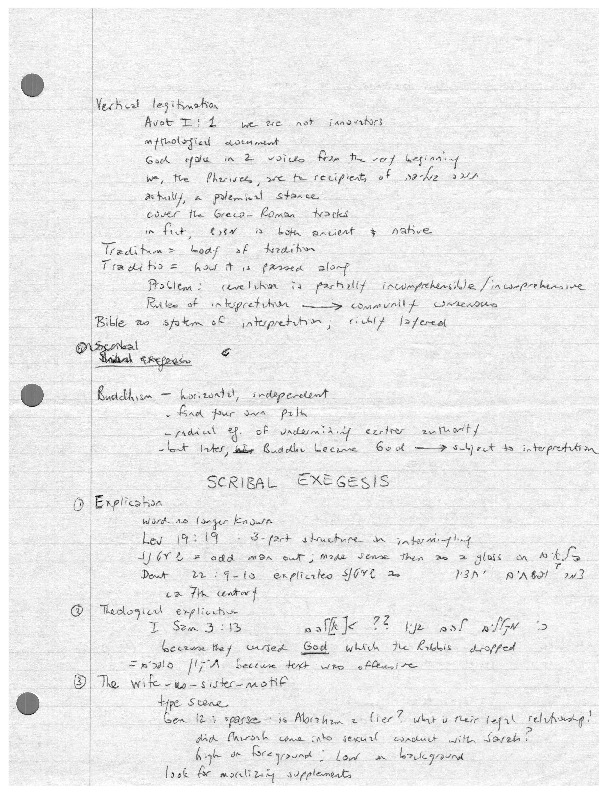 Vertical legitimation
Avot I:1 we are not innovators
mythological document
God spoke in 2 voices from the very beginning
we, the Pharisees, are the recipients of
actually, a polemical stance
cover the Greco-Roman tracks
in fact, is both ancient & native
Traditum = body of tradition
Traditio = how it is passed along
Problem: revelation is partially incomprehensible/incomprehensive
Rules of interpretation → community consensus
Bible as system of interpretation, richly layered
Scribal
exegesis
Buddhism — horizontal, independent
- find your own path
- radical eg. of undermining earlier authority
- but later, Buddha became God → subject to interpretation
SCRIBAL EXEGESIS
① Explication
word no longer known
Lev 19:19 - 3-part structure on intermingling
= odd man out, made sense then as a gloss on
Deut 22:9-10 explicates as
ca 7th century
② Theological explication
I Sam 3:13 ??
because they cursed God which the Rabbis dropped
because text was offensive
③ The wife-as-sister-motif
type scene
Gen 12: sparse: is Abraham a liar? what is their legal relationship?
did Pharaoh come into sexual conduct with Sarah?
high on foreground; low on background
look for moralizing supplements